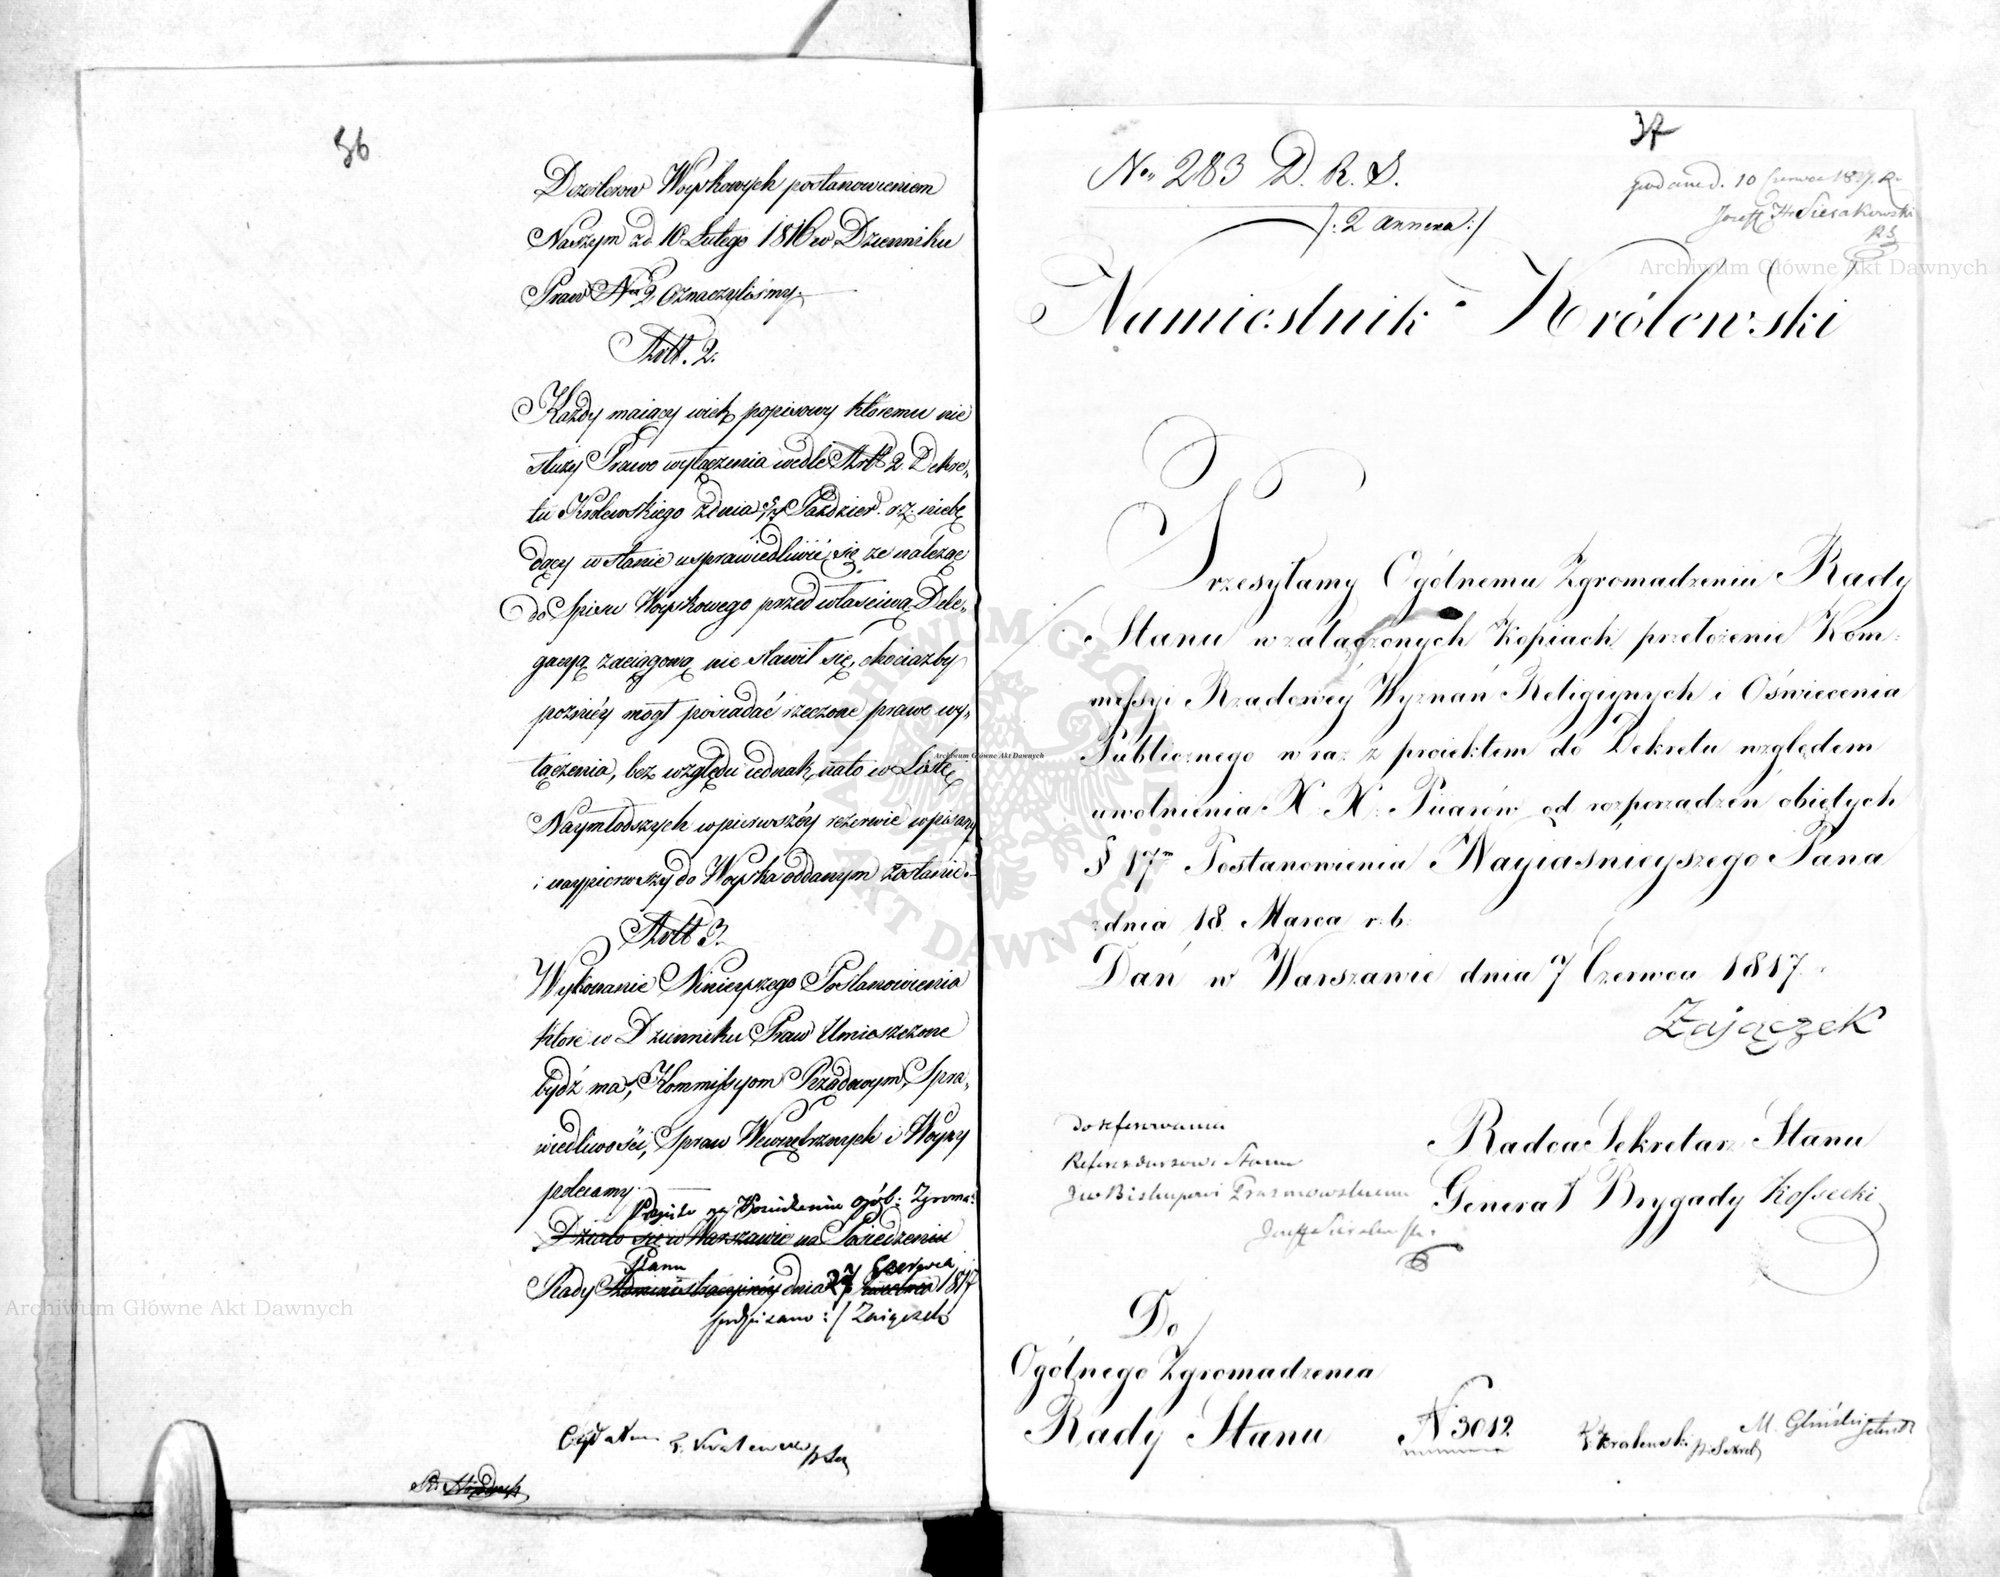 36
Dezerterow Woyskowych postanowieniem
Naszym zd 10 Lutego 1816 w Dzienniku
Praw Nro 9 oznaczyliśmy.
Artt. 2.
Każdy maiący wiek popisowy któremu nie
służy Prawo wyłączenia wedle Artt 2 Dekre„
tu Królewskiego zdnia Paździer. r.z. niebę
dący w stanie usprawiedliwić się że należąc
do Spisu Woyskowego przed właściwą Dele„
gacyą zaciągową nie stawił się, chociażby
poźniéy mógł posiadać rzeczone prawo wy„
łączenia, bez względu iednak nato w Listę
Naymłodszych w pierwszéy rezerwie wpisany
i naypierwszy do Woyska oddanym zostanie.
Artt 3.
Wykonanie Ninieyszego Postanowienia
które w Dzienniku Praw Umieszczone
bydź ma, Kommissyom Rządowym, Spra„
wiedliwości, Spraw Wewnętrznych i Woyny
polecamy.
Przyięto na Posiedzeniu ogól: Zgroma:
Działo się w Warszawie na Posiedzeniu
Stanu Czerwca
Rady Administracyjnéy dnia 27 1817
podpisano:/ Zaiączek
37
No. 283 D. R. S.
/: 2 annexa:/
podano d. 10 Czerwca 1817. R.
Jozeff Hr Sierakowski
RS
Namiestnik Królewski
Przesyłamy Ogólnemu Zgromadzeniu Rady
Stanu w załączonych Kopiach przełożenie Kom:
missyi Rządowéy Wyznań Religiynych i Oświecenia
Publicznego wraz z proiektem do Dekretu względem
uwolnienia X. X. Piiarów od rozporządzeń obiętych
§ 17m Postanowienia Nayiaśnieyszego Pana
zdnia 18 Marca r. b.
Dań w Warszawie dnia 7 Czerwca 1817.
Zajączek
do referowania
Referendarzowi Stanu
Jw Biskupowi Prazmowskiemu
Radca Sekretarz Stanu
Generał Brygady Kossecki
Do
Ogólnego Zgromadzenia
Rady Stanu
N. 3012
M. Gliński
Archiwum Główne Akt Dawnych
Archiwum Główne Akt Dawnych
Archiwum Główne Akt Dawnych
ARCHIWUM GŁÓWNE AKT DAWNYCH